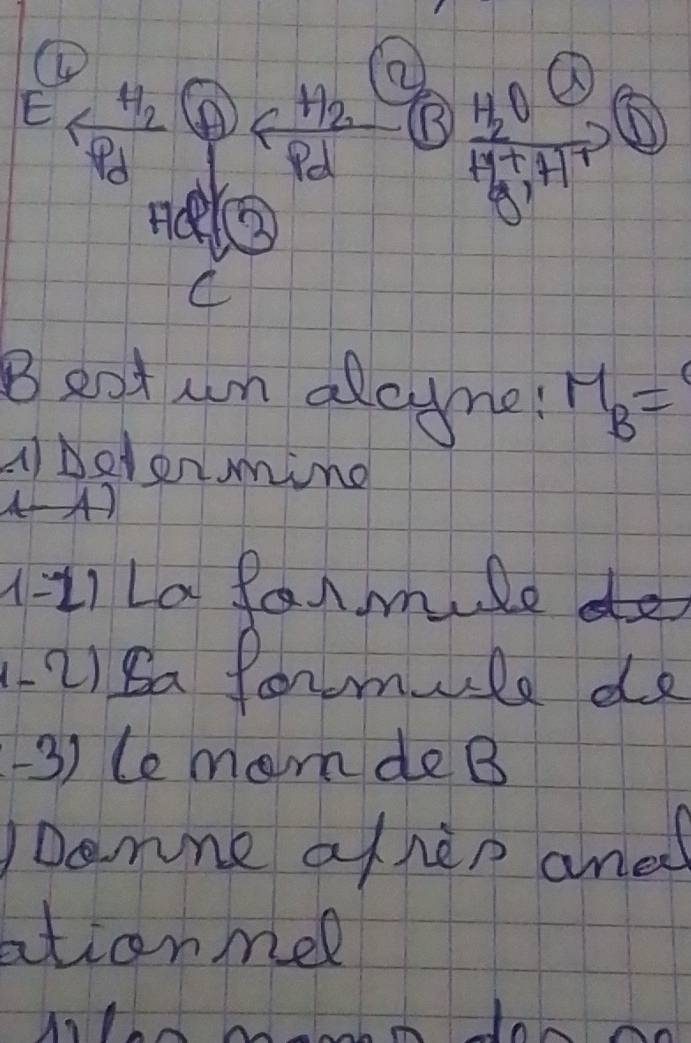 ④
E ←H₂/Pd— Ⓐ ←H₂/Pd— ② Ⓑ —H₂O/Hg²⁺, H⁺→ ① Ⓓ
HCl ③
C
B est un alcyne: M_B =
1) Determine
1-1) La formule de
1-2) Sa formule de
-3) le nom de B
) Donne après anal
ationnel